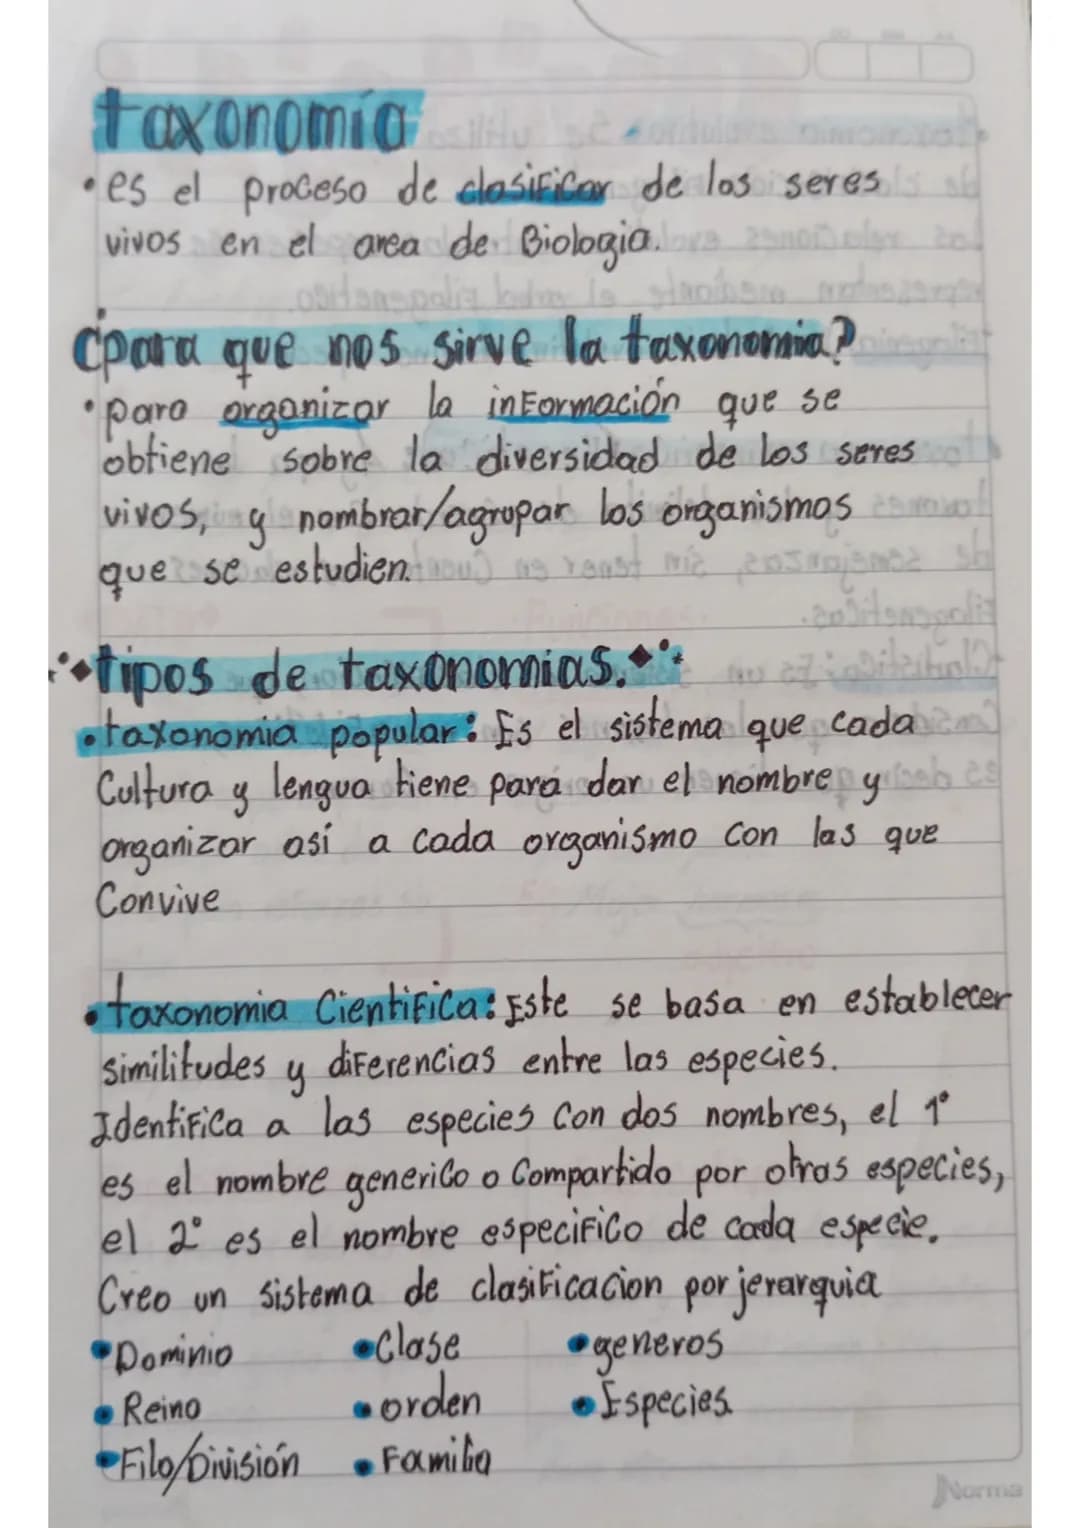 taxonomía
• es el proceso de clasificar de los seres
vivos en el area de Biologia.
¿para que nos sirve la taxonomia?
• para organizar la información que se
obtiene sobre la diversidad de los seres
vivos, y nombrar/agrupar los organismos
que se estudien.
tipos de taxonomias.
• taxonomia popular: Es el sistema que cada
Cultura y lengua tiene para dar el nombre y
organizar así a cada organismo con las que
Convive
• taxonomia Cientifica: Este se basa en establecer
similitudes y diferencias entre las especies.
Identifica a las especies con dos nombres, el 1°
es el nombre generico o Compartido por otras especies,
el 2° es el nombre especifico de cada especie.
Creo un sistema de clasificacion por jerarquia
• Dominio • Clase • generos
• Reino • orden • Especies
• Filo/División • Familia
Norma